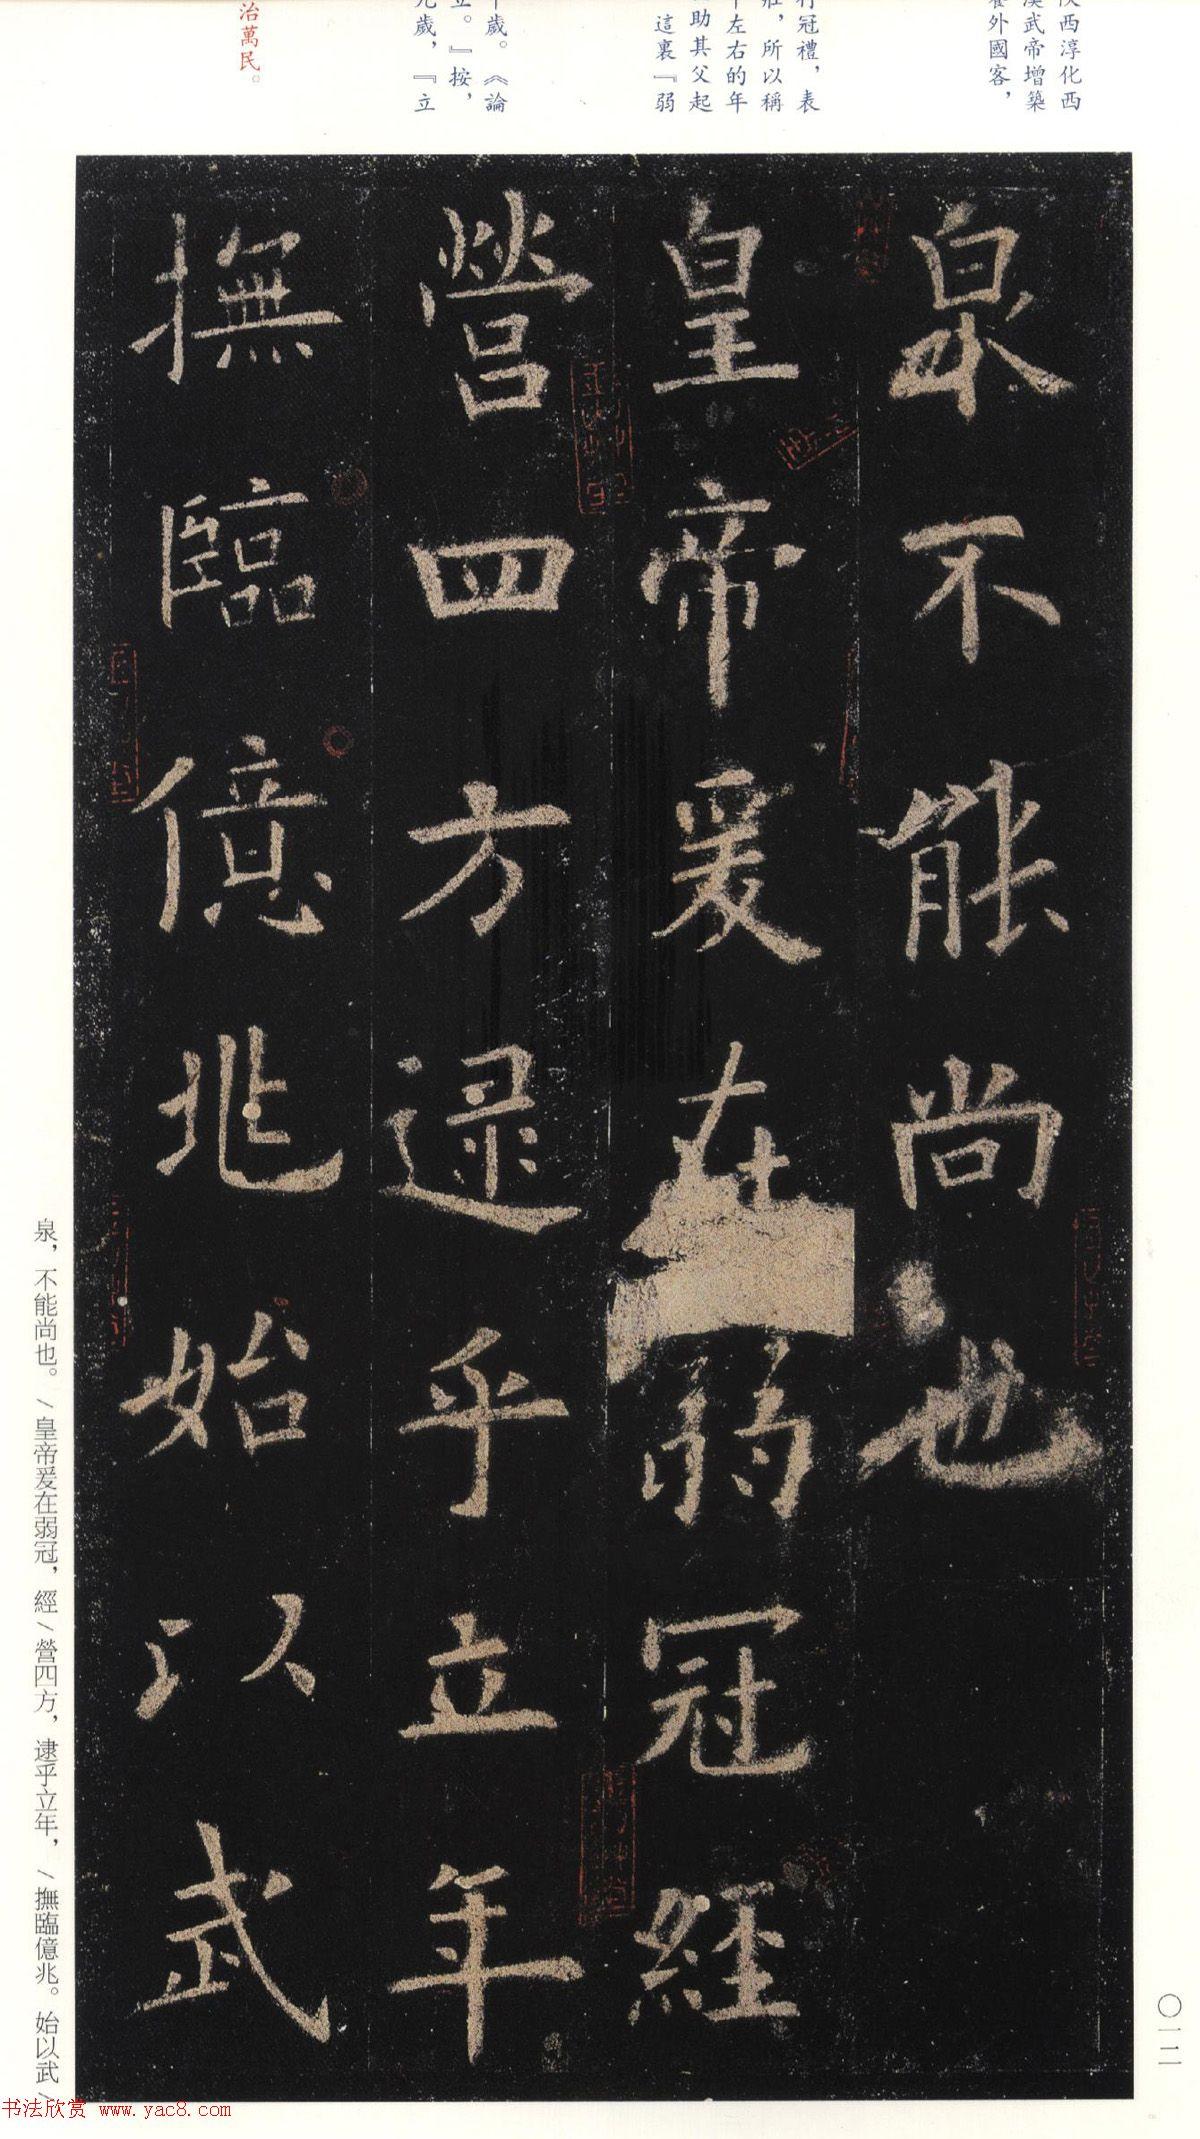 陝西淳化西
漢武帝增築
外國客，
行冠禮，表
壯，所以稱
左右的年
助其父起
這裏『弱
歲。《論
立。』按，
歲，『立
治萬民。
泉不能尚也
皇帝爰在弱冠經
營四方逮乎立年
撫臨億兆始以武
泉，不能尚也。/皇帝爰在弱冠，經/營四方，逮乎立年，/撫臨億兆。始以武/
〇一二
书法欣赏 www.yac8.com